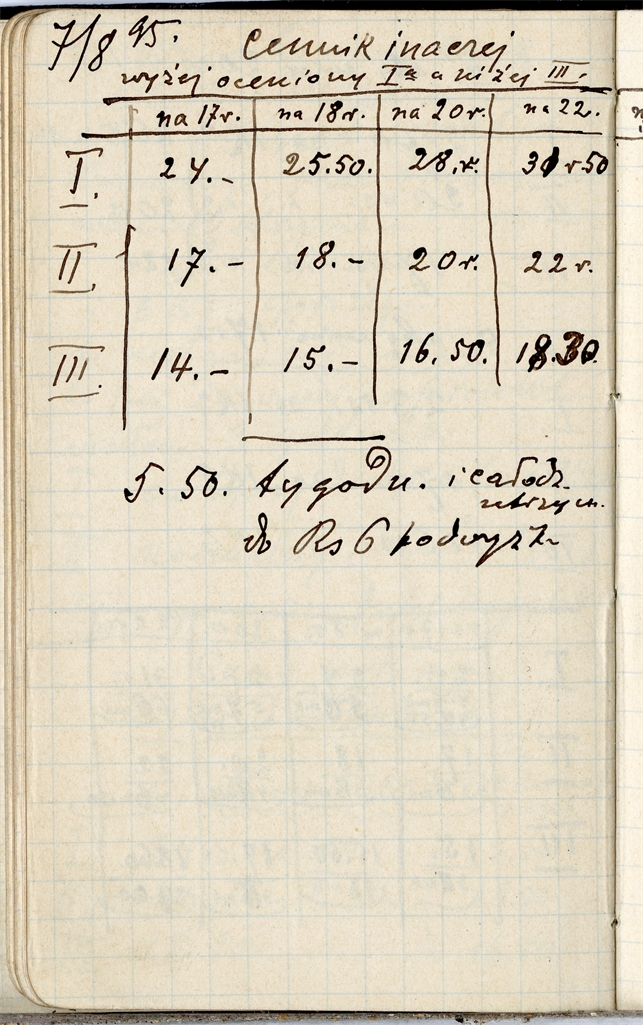 7/8 95.
Cennik inaczej
wyżej oceniony Iª a niżej III.
na 17r. na 18r. na 20r. na 22.
I. 24.- 25.50. 28.r. 31 r 50
II. 17.- 18.- 20r. 22 r.
III. 14.- 15.- 16.50. 18.30.
5.50. tygodn. i całodz.
do Rs 6 podwysz.